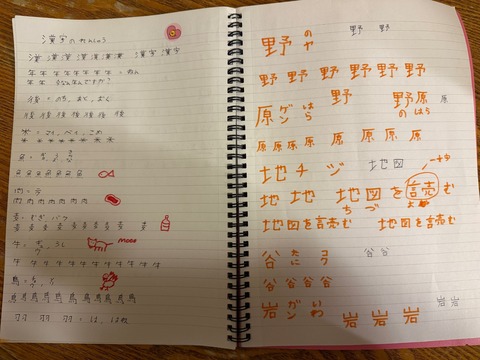 漢字のれんしゅう
漢 漢 漢 漢 漢 漢 漢 漢字 漢字
年 年 年 年 年 年 年 = ねん
後 = のち、あと、おく
後 後 後 後 後 後 後 後
米 = こめ
米 米 米 米 米 米 米
魚
魚 魚 魚 魚 魚 魚
肉 =
肉 肉 肉 肉 肉 肉 肉 肉
麦 = むぎ、バク
麦 麦 麦 麦 麦 麦 麦 麦
牛 = ギュウ、うし
moo
牛 牛 牛 牛 牛 牛 牛 牛 牛 牛
鳥 =
鳥 鳥 鳥 鳥 鳥 鳥 鳥
羽 羽 羽 = は、はね
野 のヤ 野 野
野 野 野 野 野 野
野 野原 原
のはら
原 ゲン はら
原 原 原 原 原 原 原
地 チ ヅ 地図
地 地 地図を読む
ちづ よ
地図を読む 地図を読む
谷 たに 谷 谷
谷 谷 谷 谷
岩 ガン いわ 岩 岩
岩 岩 岩